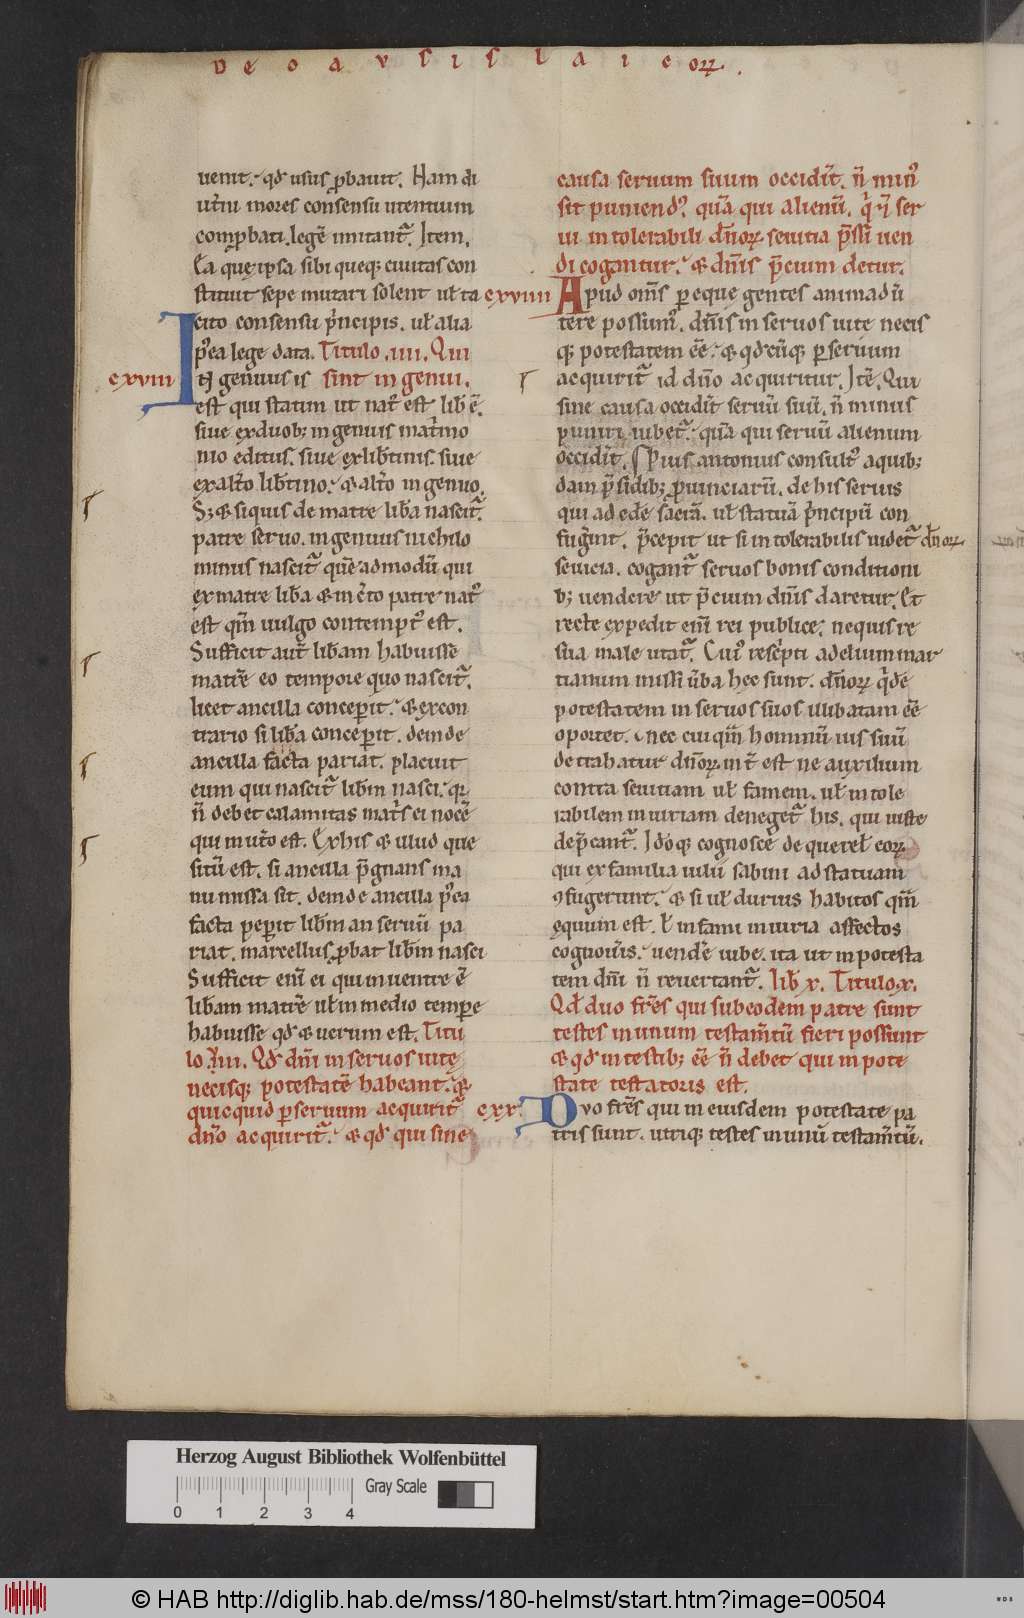 DE CAVSIS LAICOꝜ.
uenit. qđ usus ꝓbauit. Nam di
ut̾ni mores consensu utentium
comꝓbati. legē imitant᷑. Item.
Ea quę ipsa sibi queqꝫ ciuitas con
stituit sepe mutari solent uł ta
cito consensu pͥncipis. uł alia
p̾ea lege data. Titulo .iiii. Qui
cxviii
Iꞇꝗ genuus is sint ingenui.
est qui statim ut nat᷒ est lib̄ ē.
siue ex duobꝫ ingenuis mat̾mo
nio editus. siue ex lib̾tinis. siue
ex alt̾o lib̾tino. & alt̾o ingenuo.
Sꝫ & si quis de matre lib̾a nascit᷑.
patre seruo. ingenuus nichilo
minus nascit᷑ quē admodū qui
ex matre lib̾a & inc̾to patre nat᷒
est qm̄ uulgo contempt᷒ est.
Sufficit aut̄ lib̾am habuisse
matrē eo tempore quo nascit᷑.
licet ancilla conceperit. & ex con
trario si lib̾a conceperit. deinde
ancilla facta pariat. placuit
eum qui nascit᷑ lib̾m nasci. qꝛ
n̄ debet calamitas mat̾s ei nocē
qui in ut̾o est. Ex his & illud que
situm est. si ancilla p̄gnans ma
numissa sit. deinde ancilla p̾ea
facta peperit lib̾m an seruū pa
riat. marcellus ꝓbat lib̾m nasci
Sufficit eni̅ ei qui in uentre ē
lib̾am matrē uł in medio tempe
habuisse qđ & uerum est. Titu
lo .viii. Qđ dn̄i in seruos uitę
necisqꝫ potestatē habeant. &
quicquid ꝑ seruum acquirit᷑
dn̄o acquirit᷑. & qđ qui sine
causa seruum suum occidit̄. n̄ min᷒
sit puniend᷒ quā qui alienū. qͥ & ser
ui intolerabili dn̄oꝝ seuitia p̄ssi uen
di cogantur. & dn̄is p̄cium detur.
cxviiii
Apud om̄s pereque gentes animadū
tere possum᷒. dn̄is in seruos uite necis
qꝫ potestatem ēē. & qđcūqꝫ ꝑ seruum
acquirit᷑ id dn̄o acquiritur. Itē. Qui
sine causa occidit̄ seruū suū. n̄ minus
puniri iubet᷑. quā qui seruū alienum
occidit̄. Pius antonius consult᷒ a quibꝫ
dam p̄sidibꝫ ꝓuinciarū. de his seruis
qui ad edē sacrā. uł statuā pͥncipū con
fug̾int. p̄cepit ut si intolerabilis uidet᷑ dn̄oꝝ
seuicia. cogant᷑ seruos bonis conditioni
bꝫ uendere ut p̄cium dn̄is daretur. Et
recte expedit eni̅ rei publice. ne quis re
sua male utat᷑. Cui᷒ resc̾pti ad elium mar
tianum missi ūba hec sunt. dn̄oꝝ qͥdē
potestatem in seruos suos illibatam ēē
oportet. nec cuiqm̄ hominū ius suū
detrahatur dn̄oꝝ int̾ est ne auxilium
contra seuitiam uł famem. uł intole
rabilem iniuriam deneget᷑ his. qui iuste
dep̄cant᷑. Idoqꝫ cognosce de quereł eoꝝ
qui ex familia iulii sabini ad statuam
ꝯfugerunt. & si uł durius habitos qm̄
ęquum est. ł infami iniuria affectos
cognoūis. uendē iube. ita ut in potesta
tem dn̄i n̄ reuertant᷑. lib x. Titulo x.
Qđ duo fr̄es qui sub eodem patre sunt
testes in unum testam̄tū fieri possunt
& qđ in testibꝫ ēē n̄ debet qui in pote
state testatoris est.
cxx.
Dvo fr̄es qui in eiusdem potestate pa
tris sunt. utriqꝫ testes in unū testam̄tū.
Herzog August Bibliothek Wolfenbüttel
Gray Scale
0 1 2 3 4
© HAB http://diglib.hab.de/mss/180-helmst/start.htm?image=00504